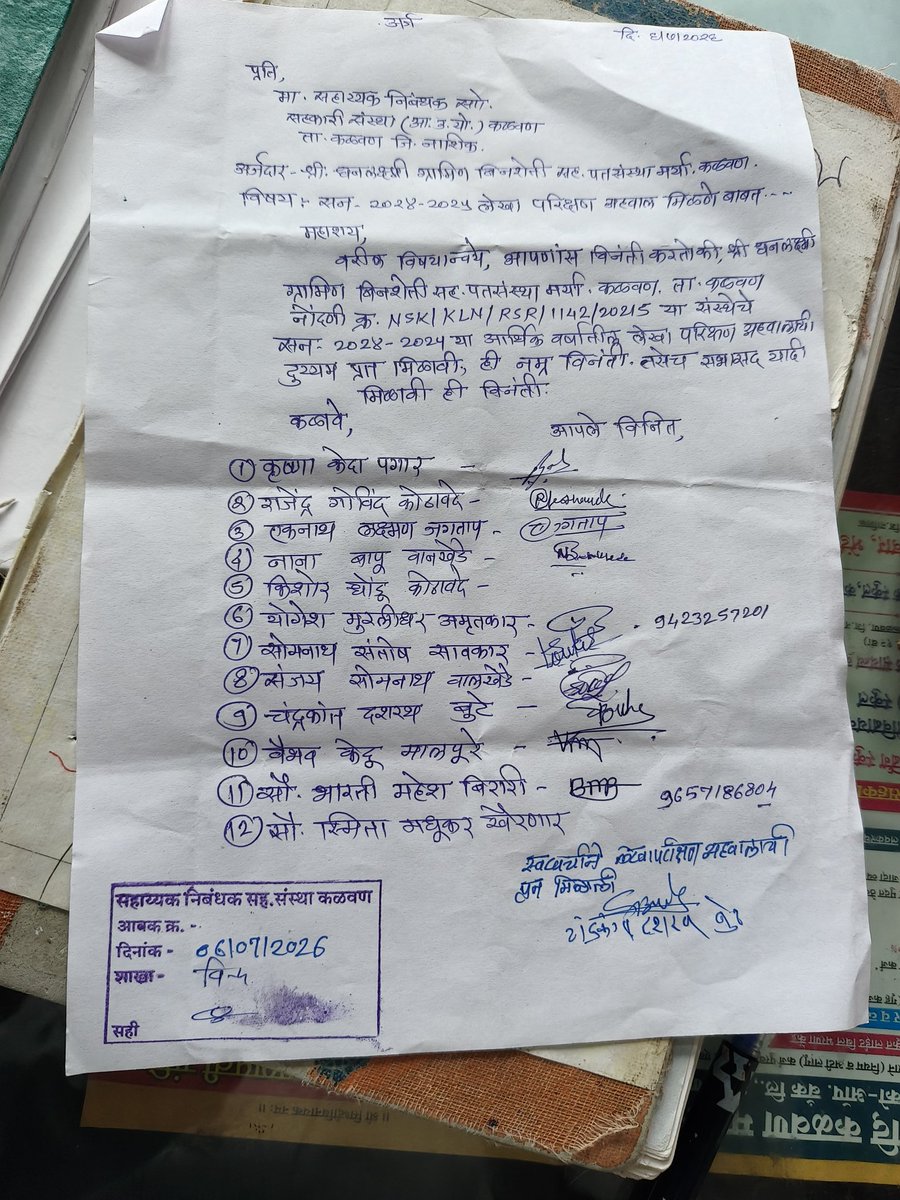 अर्ज
दि. ६/७/२०२६
प्रति,
मा. सहाय्यक निबंधक सो.
सहकारी संस्था (आ. उ. यो.) कळवण
ता. कळवण जि. नाशिक.
अर्जदार - श्री. धनलक्ष्मी ग्रामिण बिनशेती सह. पतसंस्था मर्या. कळवण.
विषय :- सन - २०२४-२०२५ लेखा परिक्षण अहवाल मिळणे बाबत....
महाशय,
वरील विषयान्वये, आपणांस विनंती करतो की, श्री धनलक्ष्मी
ग्रामिण बिनशेती सह. पतसंस्था मर्या. कळवण. ता. कळवण
नोंदणी क्र. NSK/KLN/RSR/1142/20215 या संस्थेचे
सन - २०२४-२०२५ या आर्थिक वर्षातील लेखा परिक्षण अहवालाची
दुय्यम प्रत मिळावी, ही नम्र विनंती. तसेच सभासद यादी
मिळावी ही विनंती.
कळावे,
आपले विनित,
① कृष्णा केदा पगार -
② राजेंद्र गोविंद कोठावदे -
③ एकनाथ लक्ष्मण जगताप - जगताप
④ नाना बापू वानखेडे -
⑤ किशोर धोंडू कोठावदे -
⑥ योगेश मुरलीधर अमृतकार - 9423257201
⑦ सोमनाथ संतोष सावकार -
⑧ संजय सोमनाथ वालखेडे -
⑨ चंद्रकांत दशरथ बुटे -
⑩ वैभव केदू मालपूरे -
⑪ सौ. भारती महेश बिरारी - BMB 9657186804
⑫ सौ. स्मिता मधूकर खैरणार
स्वखर्चाने लेखापरिक्षण अहवालाची
प्रत मिळाली
चंद्रकांत दशरथ बुटे
सहाय्यक निबंधक सह.संस्था कळवण
आबक क्र. -
दिनांक - 06/07/2026
शाखा - वि-५
सही